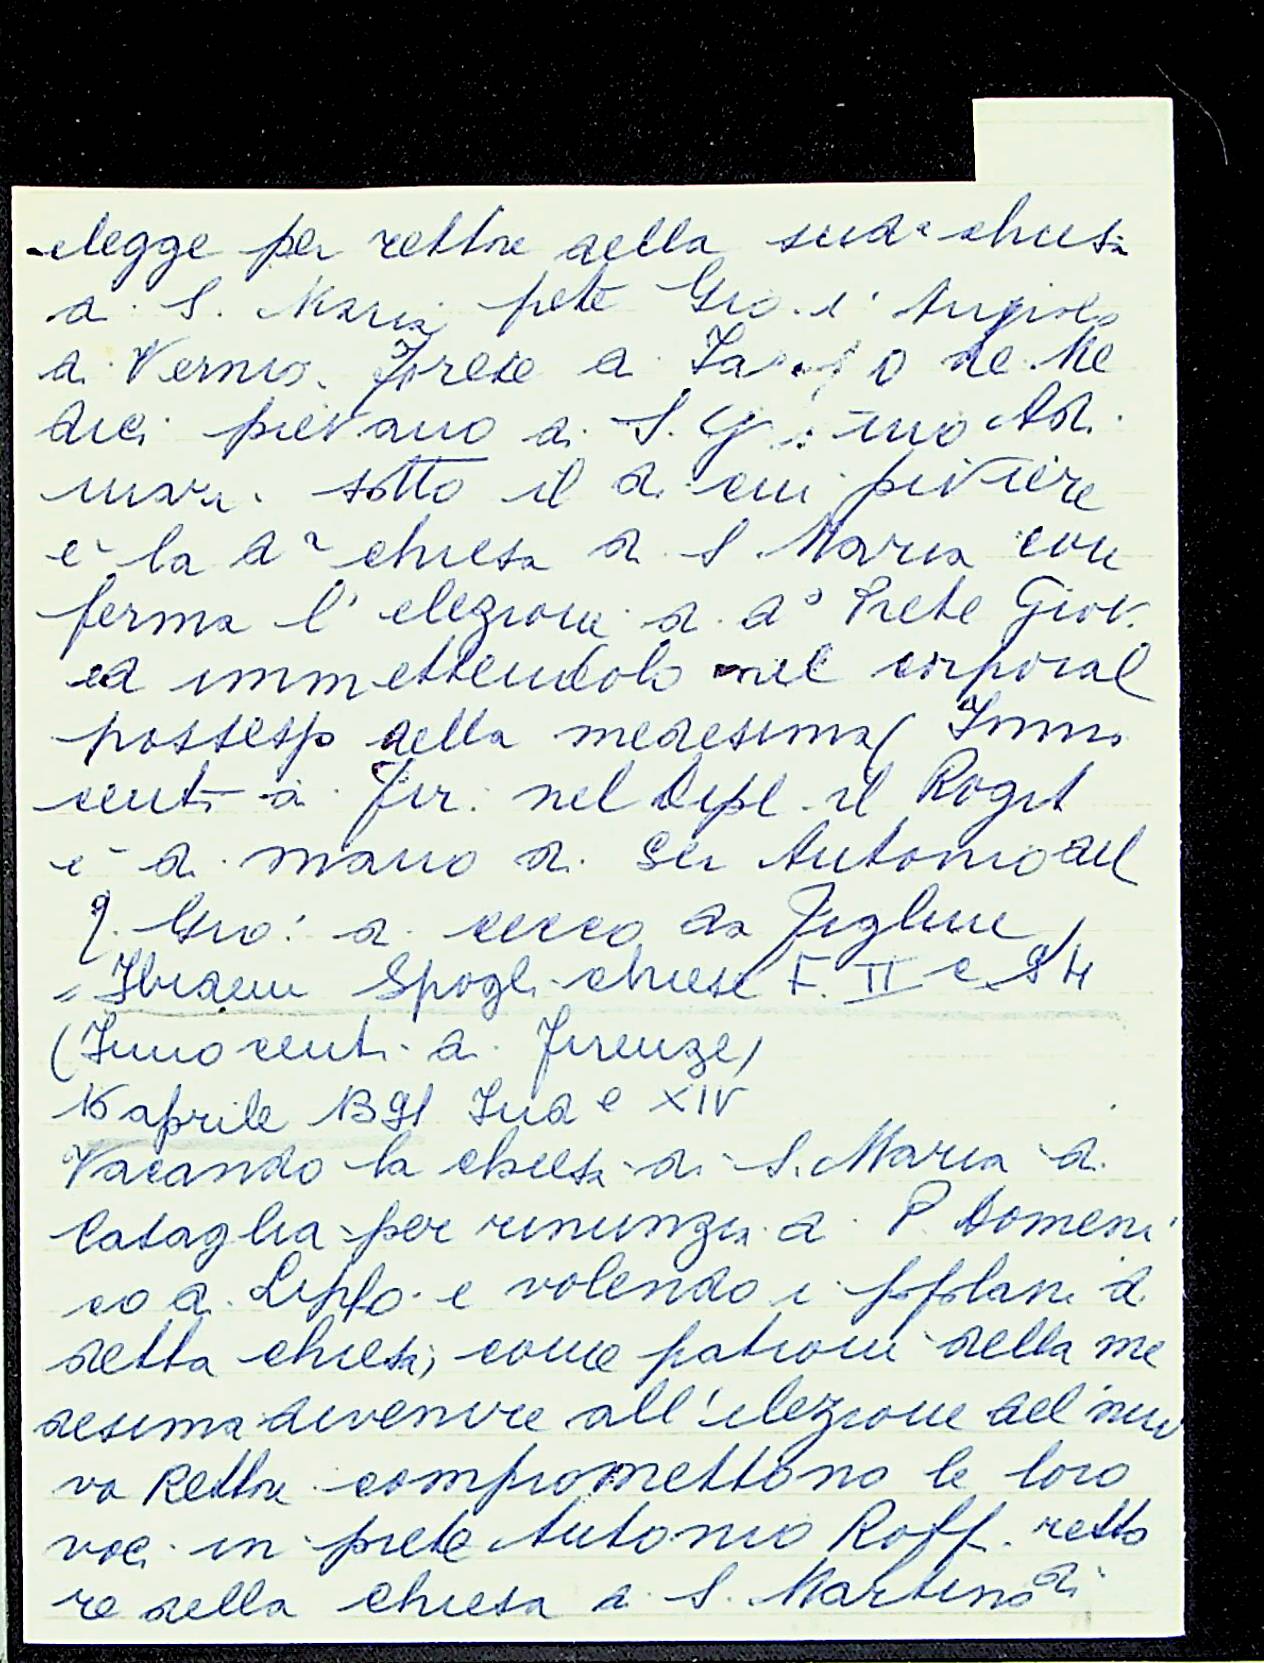 elegge per rettore della sudª chiesa
di S. Maria prete Gio. d' Angiolo
di Vernio. Forese di De Me
dici pievano di S. Adi
mari. sotto il di cui piviere
è la dª chiesa di S. Maria con
ferma l'elezione di d° Prete Giov.
ed immettendolo nel corporal
possesso della medesima (Inno
centi di Fir. nel Dipl. il Rogit
è di mano di Ser Antonio del
q. Gio: di Cecco da Figline)
= Ibidem Spogli chiese F. II c. 94
(Innocenti di Firenze)
16 aprile 1391 Ind e XIV
Vacando la chiesa di S. Maria di
Casaglia per rinunzia di P. Domeni
co di Lippo e volendo i popolani di
detta chiesa, come patroni della me
desima devenire all'elezione del nuo
vo Rettore compromettono le loro
voci in prete Antonio Roff. retto
re della chiesa di S. Martino di